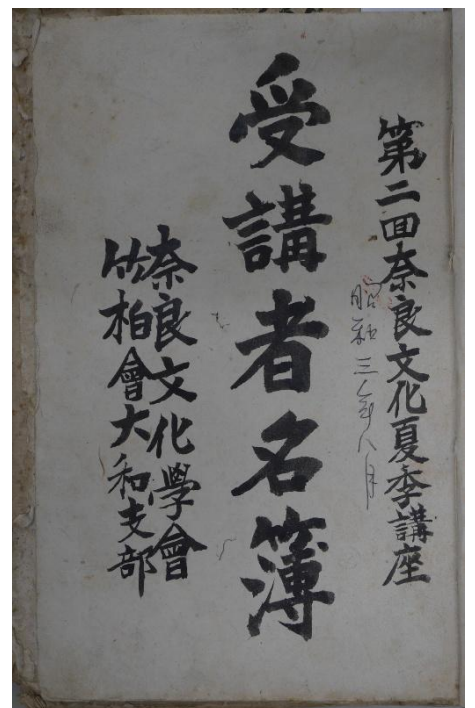 第二回奈良文化夏季講座
昭和三年八月
受講者名簿
奈良文化學會
竹柏會大和支部